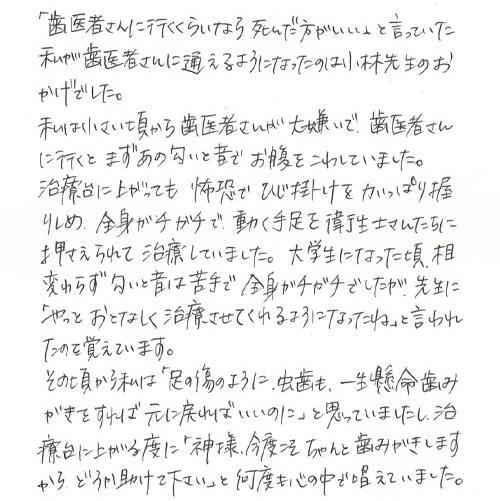 「歯医者さんに行くくらいなら死んだ方がいい。」と言っていた
私が歯医者さんに通えるようになったのは小林先生のお
かげでした。
私は小さい頃から歯医者さんが大嫌いで、歯医者さん
に行くとまずあの匂いと音でお腹をこわしていました。
治療台に上がっても怖恐でひじ掛けをかいっぱり握
りしめ、全身がチガチで、動く手足を衛生士さんたちに
押さえられて治療していました。大学生になった頃、相
変わらず匂いと音は苦手で全身がチガチでしたが、先生に
「やっとおとなしく治療させてくれるようになったね」と言われ
たのを覚えています。
その頃から私は「足の傷のように、虫歯も、一生懸命歯み
がきをすれば元に戻ればいいのに」と思っていましたし、治
療台に上がる度に「神様、今度こそちゃんと歯みがきします
から、どうか助けて下さい」と何度も心の中で唱えていました。